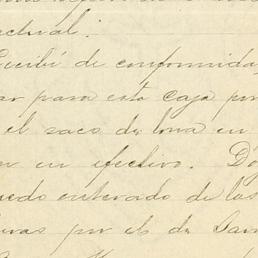 actual:
Recibí de conformidad
para esta caja por
el saco de lona en
en un efectivo. Do
quedo enterado de las
por el de San